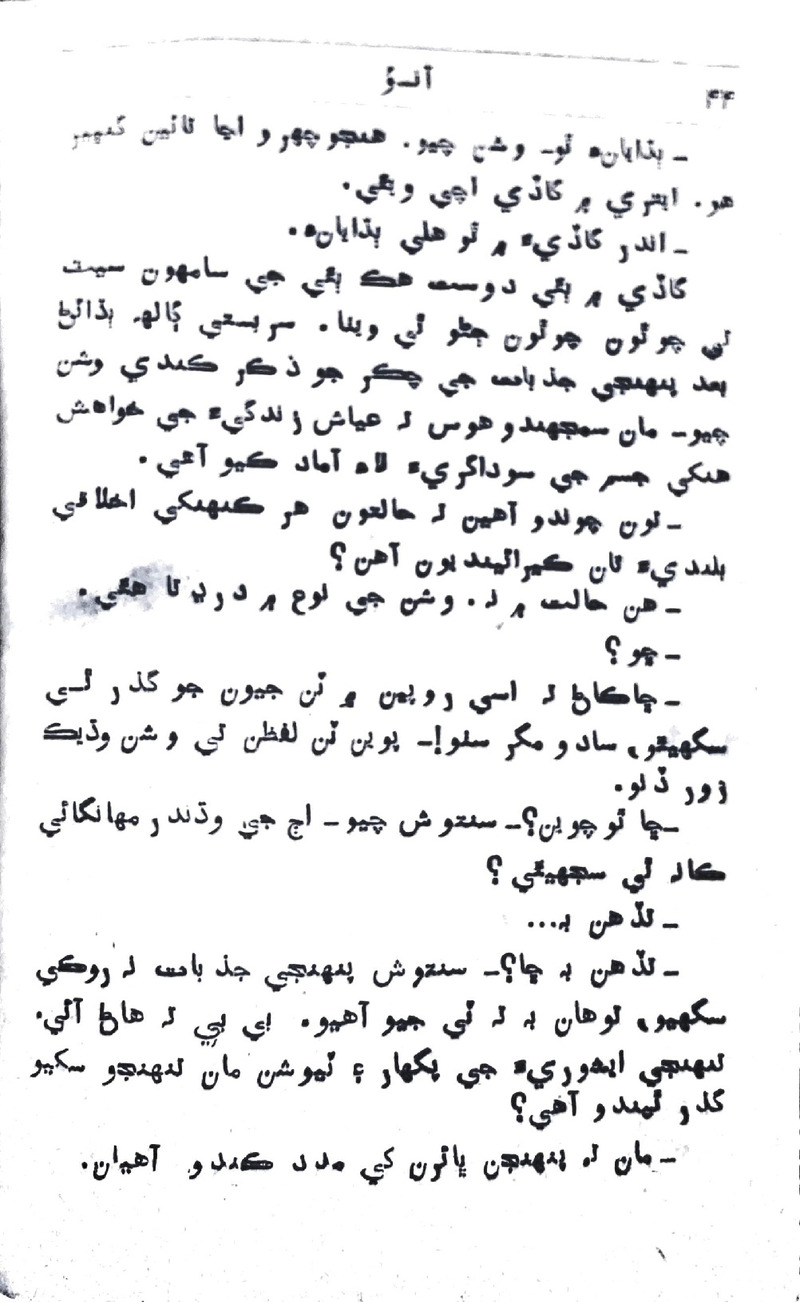 ۴۴
آنسؤ
ـ ٻڌايانءِ ٿو۔ وشن چيو. هنجو چهرو اڃا تائين گنڀير
هو. ايتري ۾ گاڏي اچي ويئي.
ـ اندر گاڏيءَ ۾ ٿو هلي ٻڌايانءِ.
گاڏي ۾ ٻئي دوست هڪ ٻئي جي سامهون سيٽ
تي چوٿون چوٿون ڄڻو ٿي ويٺا. سربستي ڳالھ ٻڌائڻ
بعد پنهنجي جذبات جي چڪر جو ذڪر ڪندي وشن
چيو۔ مان سمجهندو هوس تہ عياش زندگيءَ جي خواهش
هنکي جسم جي سوداگريءَ لاءِ آماده ڪيو آهي.
ـ تون چوندو آهين تہ حالتون هر ڪنهنکي اخلاقي
بلنديءَ تان ڪيرائينديون آهن؟
ـ هن حالت ۾ نہ. وشن جي لوح ۾ درڍتا هئي.
ـ ڇو؟
ـ ڇاڪاڻ تہ اسي روپين ۾ ٽن جيون جو گذر ٿــي
سگهيٿو، سادو مگر سٺو!۔ پوين ٽن لفظن تي وشن وڌيڪ
زور ڏنو.
ـ ڇا ٿو چوين؟۔ سنتوش چيو۔ اڄ جي وڌندر مهانگائي
ڪانہ ٿي سجهيئي؟
ـ تڏهن بہ...
ـ تڏهن بہ ڇا؟۔ سنتوش پنهنجي جذبات نہ روڪي
سگهيو، توهان بہ تہ ٽي جيو آهيو. بي بي تہ هاڻ آئي.
تنهنجي ايشوريءَ جي پگهار ۽ ٽيوشن مان تنهنجو سکيو
گذر ٿيندو آهي؟
ـ مان تہ پنهنجن ڀائرن کي مدد ڪندو آهيان.